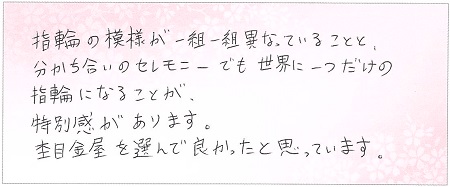 指輪の模様が一組一組異なっていることと、
分かち合いのセレモニーでも世界に一つだけの
指輪になることが、
特別感があります。
杢目金屋を選んで良かったと思っています。